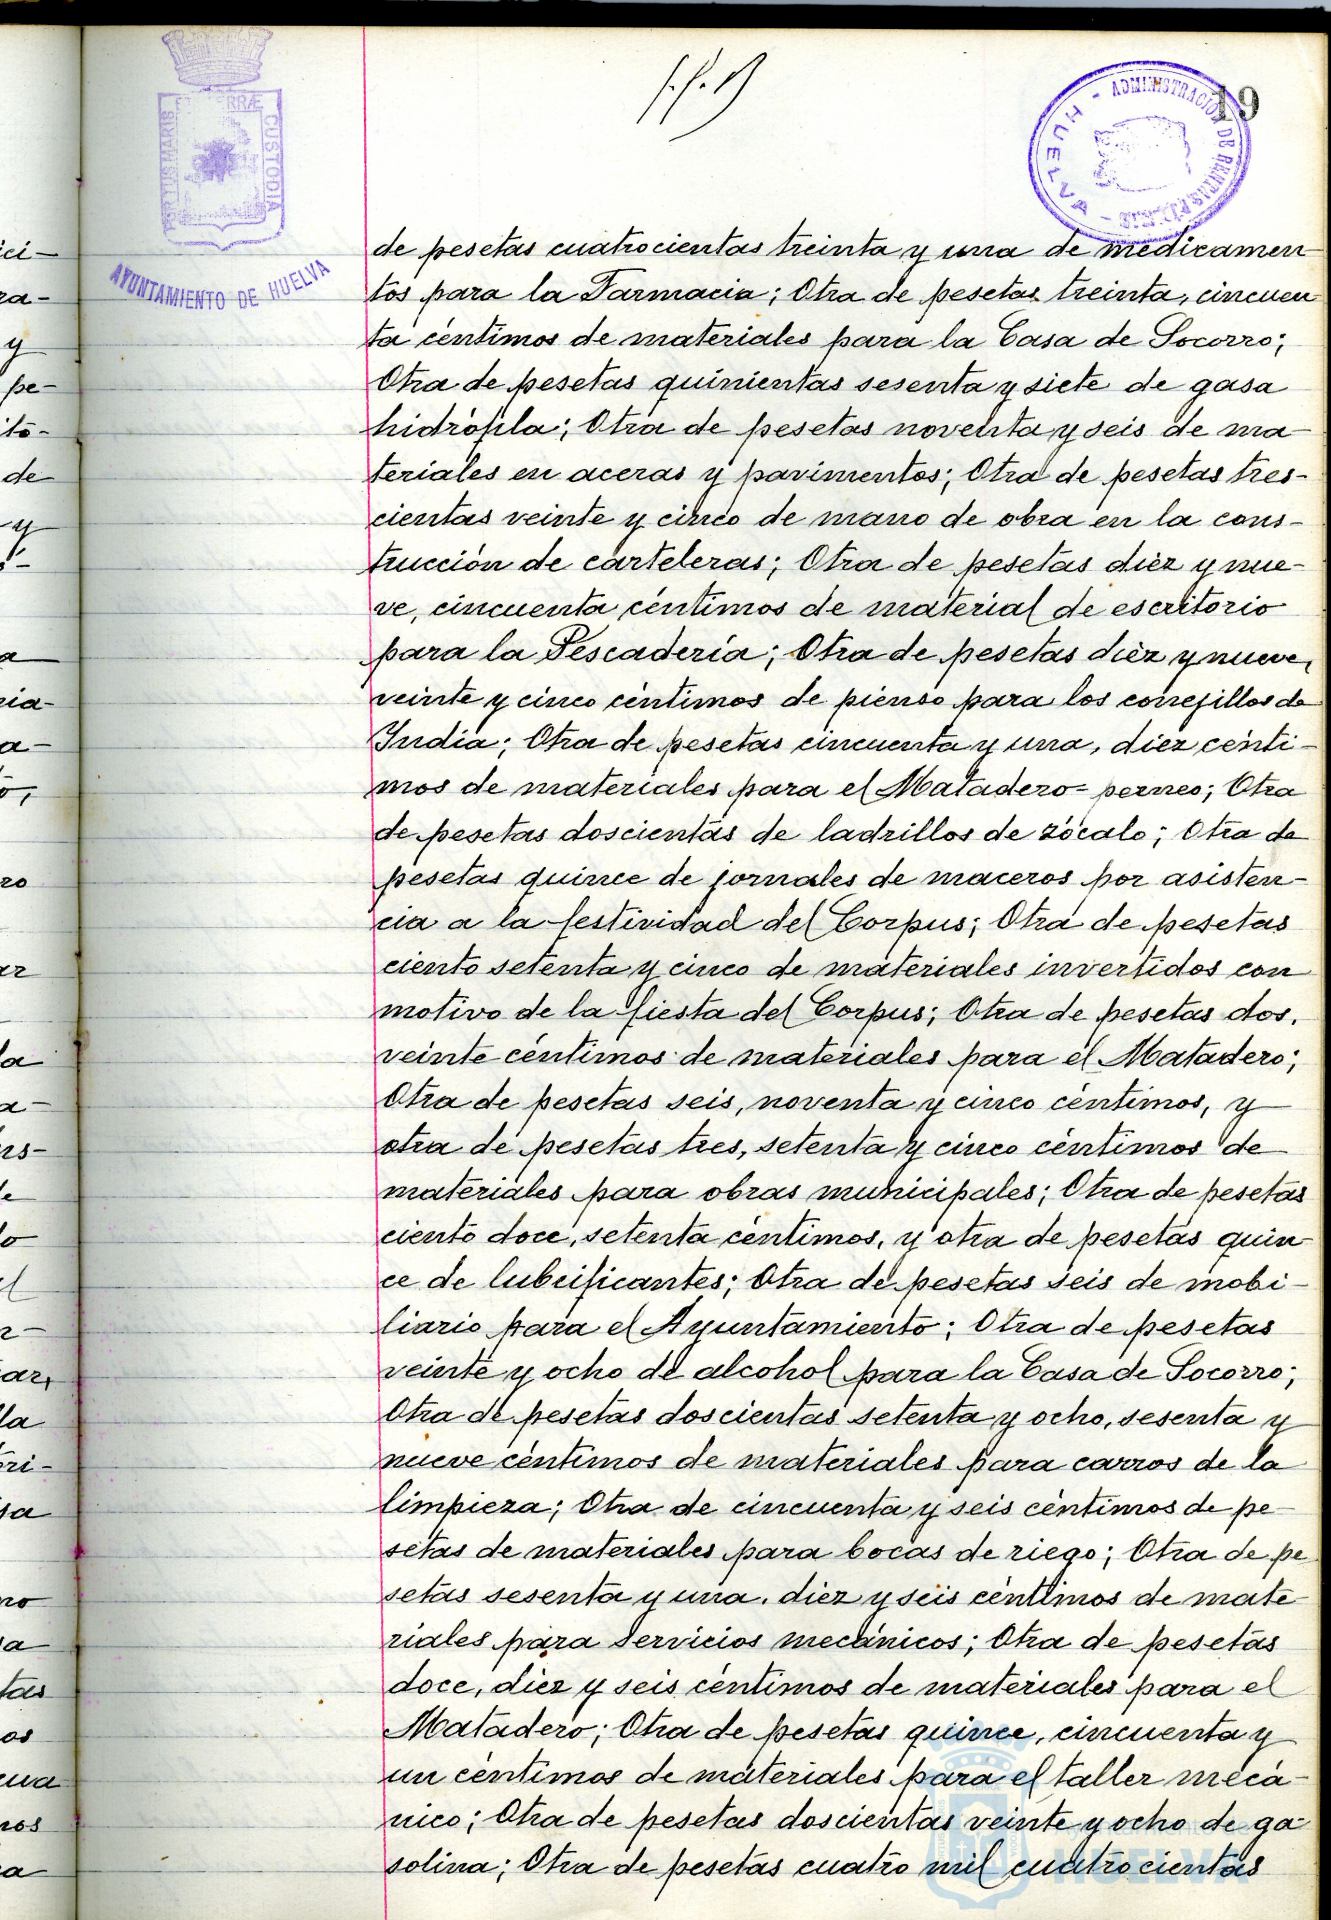 19
PORTUS MARIS ET TERRÆ CUSTODIA
AYUNTAMIENTO DE HUELVA
ADMINISTRACIÓN DE RENTAS
HUELVA
de pesetas cuatrocientas treinta y una de medicamen
tos para la Farmacia; Otra de pesetas treinta, cincuen
ta céntimos de materiales para la Casa de Socorro;
Otra de pesetas quinientas sesenta y siete de gasa
hidrófila; Otra de pesetas noventa y seis de ma-
teriales en aceras y pavimentos; Otra de pesetas tres-
cientas veinte y cinco de mano de obra en la cons-
trucción de carteleras; Otra de pesetas diez y nue-
ve, cincuenta céntimos de material de escritorio
para la Pescadería; Otra de pesetas diez y nueve,
veinte y cinco céntimos de pienso para los conejillos de
India; Otra de pesetas cincuenta y una, diez cénti-
mos de materiales para el Matadero-perneo; Otra
de pesetas doscientas de ladrillos de zócalo; Otra de
pesetas quince de jornales de maceros por asisten-
cia a la festividad del Corpus; Otra de pesetas
ciento setenta y cinco de materiales invertidos con
motivo de la fiesta del Corpus; Otra de pesetas dos,
veinte céntimos de materiales para el Matadero;
Otra de pesetas seis, noventa y cinco céntimos, y
otra de pesetas tres, setenta y cinco céntimos de
materiales para obras municipales; Otra de pesetas
ciento doce, setenta céntimos, y otra de pesetas quin-
ce de lubrificantes; Otra de pesetas seis de mobi-
liario para el Ayuntamiento; Otra de pesetas
veinte y ocho de alcohol para la Casa de Socorro;
Otra de pesetas doscientas setenta y ocho, sesenta y
nueve céntimos de materiales para carros de la
limpieza; Otra de cincuenta y seis céntimos de pe-
setas de materiales para bocas de riego; Otra de pe
setas sesenta y una, diez y seis céntimos de mate
riales para servicios mecánicos; Otra de pesetas
doce, diez y seis céntimos de materiales para el
Matadero; Otra de pesetas quince, cincuenta y
un céntimos de materiales para el taller mecá-
nico; Otra de pesetas doscientas veinte y ocho de ga-
solina; Otra de pesetas cuatro mil cuatrocientas
HUELVA